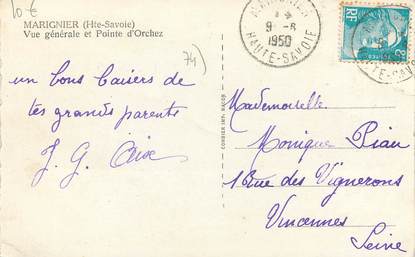 10 €
MARIGNIER (Hte-Savoie)
Vue générale et Pointe d'Orchez
74
un bons baisers de
tes grands parents
J. G.
9-8
1950
HAUTE-SAVOIE
RF
COMBIER IMP. MACON
Mademoiselle
Monique Piau
1 Rue des Vignerons
Vincennes
Seine